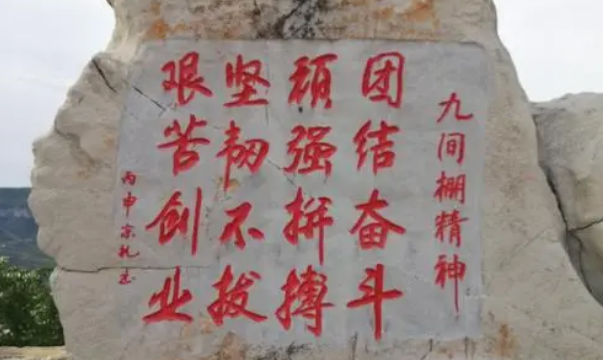 九间棚精神
团结奋斗
顽强拼搏
坚韧不拔
艰苦创业
丙申京礼志